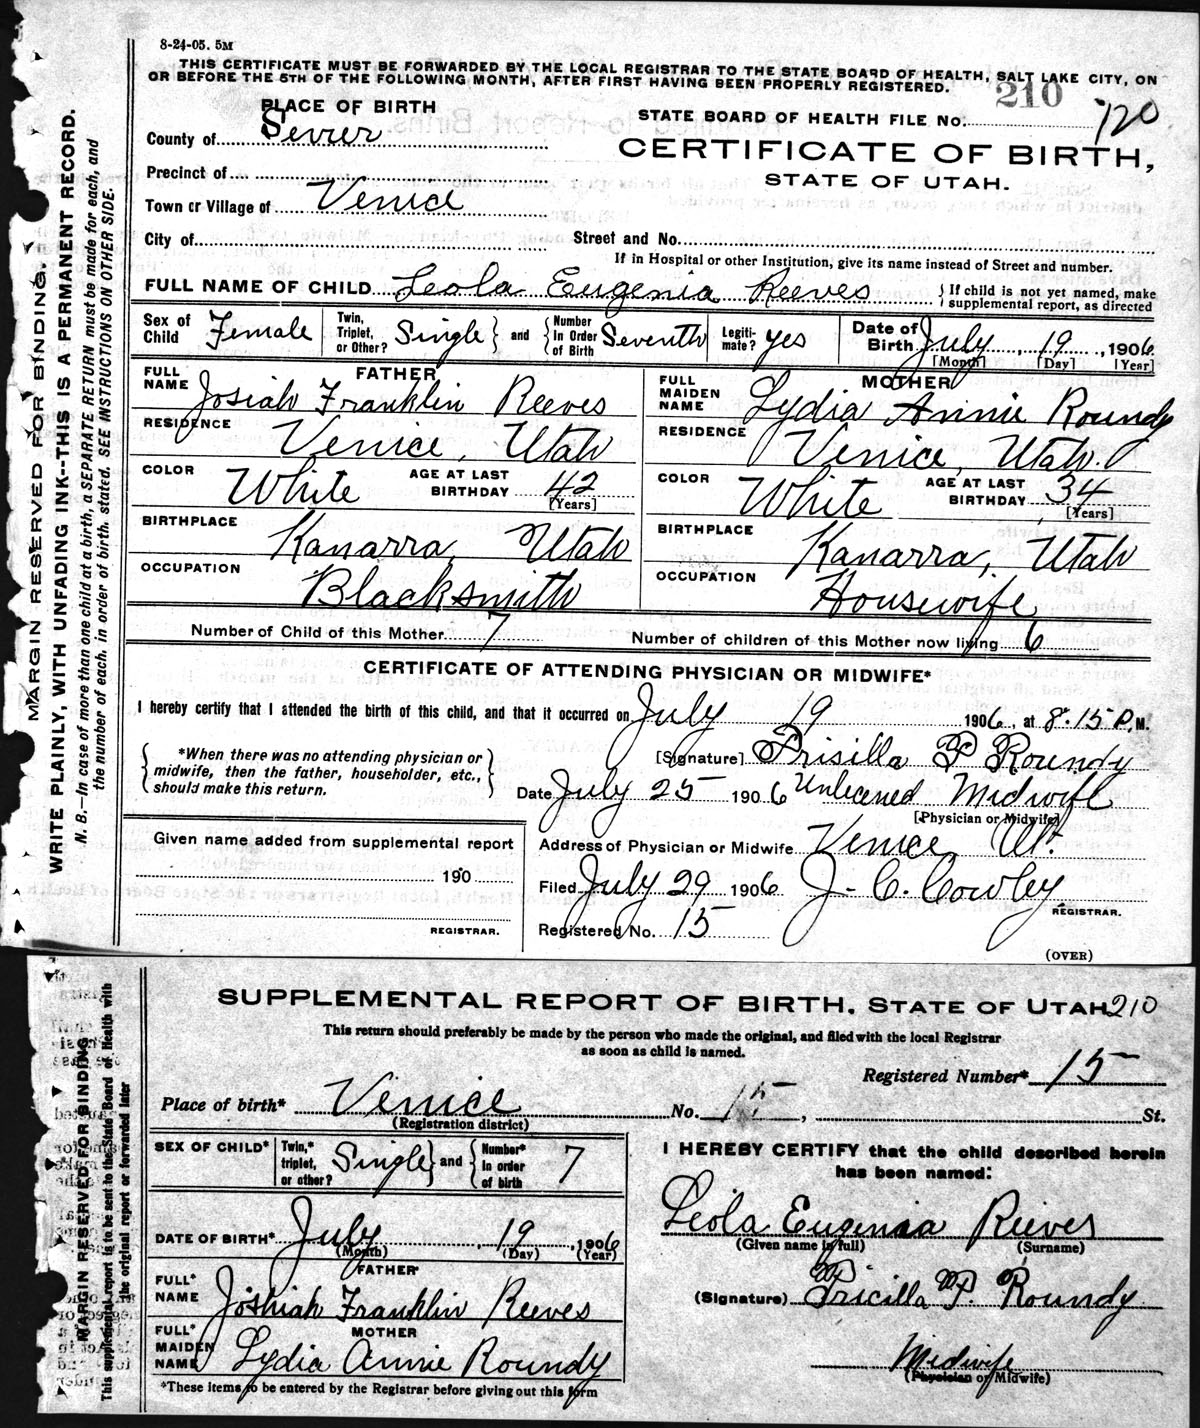 8-24-05. 5M
THIS CERTIFICATE MUST BE FORWARDED BY THE LOCAL REGISTRAR TO THE STATE BOARD OF HEALTH, SALT LAKE CITY, ON
OR BEFORE THE 5TH OF THE FOLLOWING MONTH, AFTER FIRST HAVING BEEN PROPERLY REGISTERED.
210
PLACE OF BIRTH
STATE BOARD OF HEALTH FILE No. 120
County of Sevier
CERTIFICATE OF BIRTH,
STATE OF UTAH.
Precinct of
Town or Village of Venice
City of Street and No.
If in Hospital or other Institution, give its name instead of Street and number.
FULL NAME OF CHILD Leola Eugenia Reeves } If child is not yet named, make supplemental report, as directed
Sex of Child Female Twin, Triplet, or Other? Single } and { Number In Order of Birth Seventh Legitimate? yes Date of Birth July, 19, 1906
[Month] [Day] [Year]
FATHER MOTHER
FULL NAME Josiah Franklin Reeves FULL MAIDEN NAME Lydia Annie Roundy
RESIDENCE Venice, Utah RESIDENCE Venice, Utah.
COLOR White AGE AT LAST BIRTHDAY 42 [Years] COLOR White AGE AT LAST BIRTHDAY 34 [Years]
BIRTHPLACE Kanarra, Utah BIRTHPLACE Kanarra, Utah
OCCUPATION Blacksmith OCCUPATION Housewife
Number of Child of this Mother 7 Number of children of this Mother now living 6
CERTIFICATE OF ATTENDING PHYSICIAN OR MIDWIFE*
I hereby certify that I attended the birth of this child, and that it occurred on July 19 1906, at 8.15 P.M.
{ *When there was no attending physician or midwife, then the father, householder, etc., should make this return. }
[Signature] Prisilla P Roundy
Date July 25 1906 Unlicened Midwife
[Physician or Midwife]
Given name added from supplemental report
190
REGISTRAR.
Address of Physician or Midwife Venice Ut.
Filed July 29 1906 J. C. Cowley
REGISTRAR.
Registered No. 15
(OVER)
MARGIN RESERVED FOR BINDING.
WRITE PLAINLY, WITH UNFADING INK--THIS IS A PERMANENT RECORD.
N. B.—In case of more than one child at a birth, a SEPARATE RETURN must be made for each, and
the number of each, in order of birth, stated. SEE INSTRUCTIONS ON OTHER SIDE.
SUPPLEMENTAL REPORT OF BIRTH, STATE OF UTAH 210
This return should preferably be made by the person who made the original, and filed with the local Registrar
as soon as child is named.
Registered Number* 15
Place of birth* Venice No. 15, St.
(Registration district)
SEX OF CHILD* Twin,* triplet, or other? Single } and { Number* in order of birth 7
I HEREBY CERTIFY that the child described herein
has been named:
DATE OF BIRTH* July, 19, 1906
(Month) (Day) (Year)
Leola Eugenia Reeves
(Given name in full) (Surname)
FATHER
FULL* NAME Joshiah Franklin Reeves
(Signature) Pricilla P. Roundy
MOTHER
FULL* MAIDEN NAME Lydia Annie Roundy
Midwife
(Physician or Midwife)
*These items to be entered by the Registrar before giving out this form
MARGIN RESERVED FOR BINDING
This supplemental report is to be sent to the State Board of Health with
the original report or forwarded later